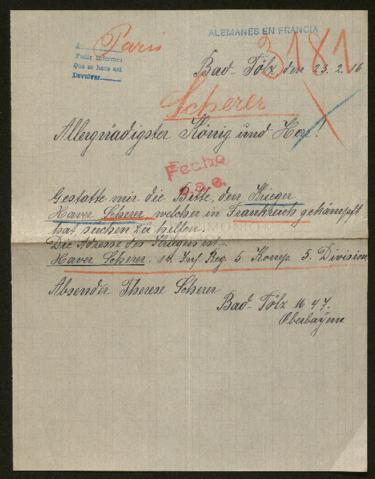 A
Paris
Pedir Informes
Que se hace así
Devolver
ALEMANES EN FRANCIA
3181
Bad-Tölz den 23.2.16
Scherer
Allergnädigster König und Herr!
Fecho
Gestatte mir die Bitte, den Krieger
Xaver Scherer welcher in Frankreich gekämpft
hat suchen zu helfen.
Die Adresse des Kriegers ist
Xaver Scherer Inf. Reg. 5 Komp. 5. Division
Absender Therese Scherer
Bad-Tölz 47.
Oberbayern